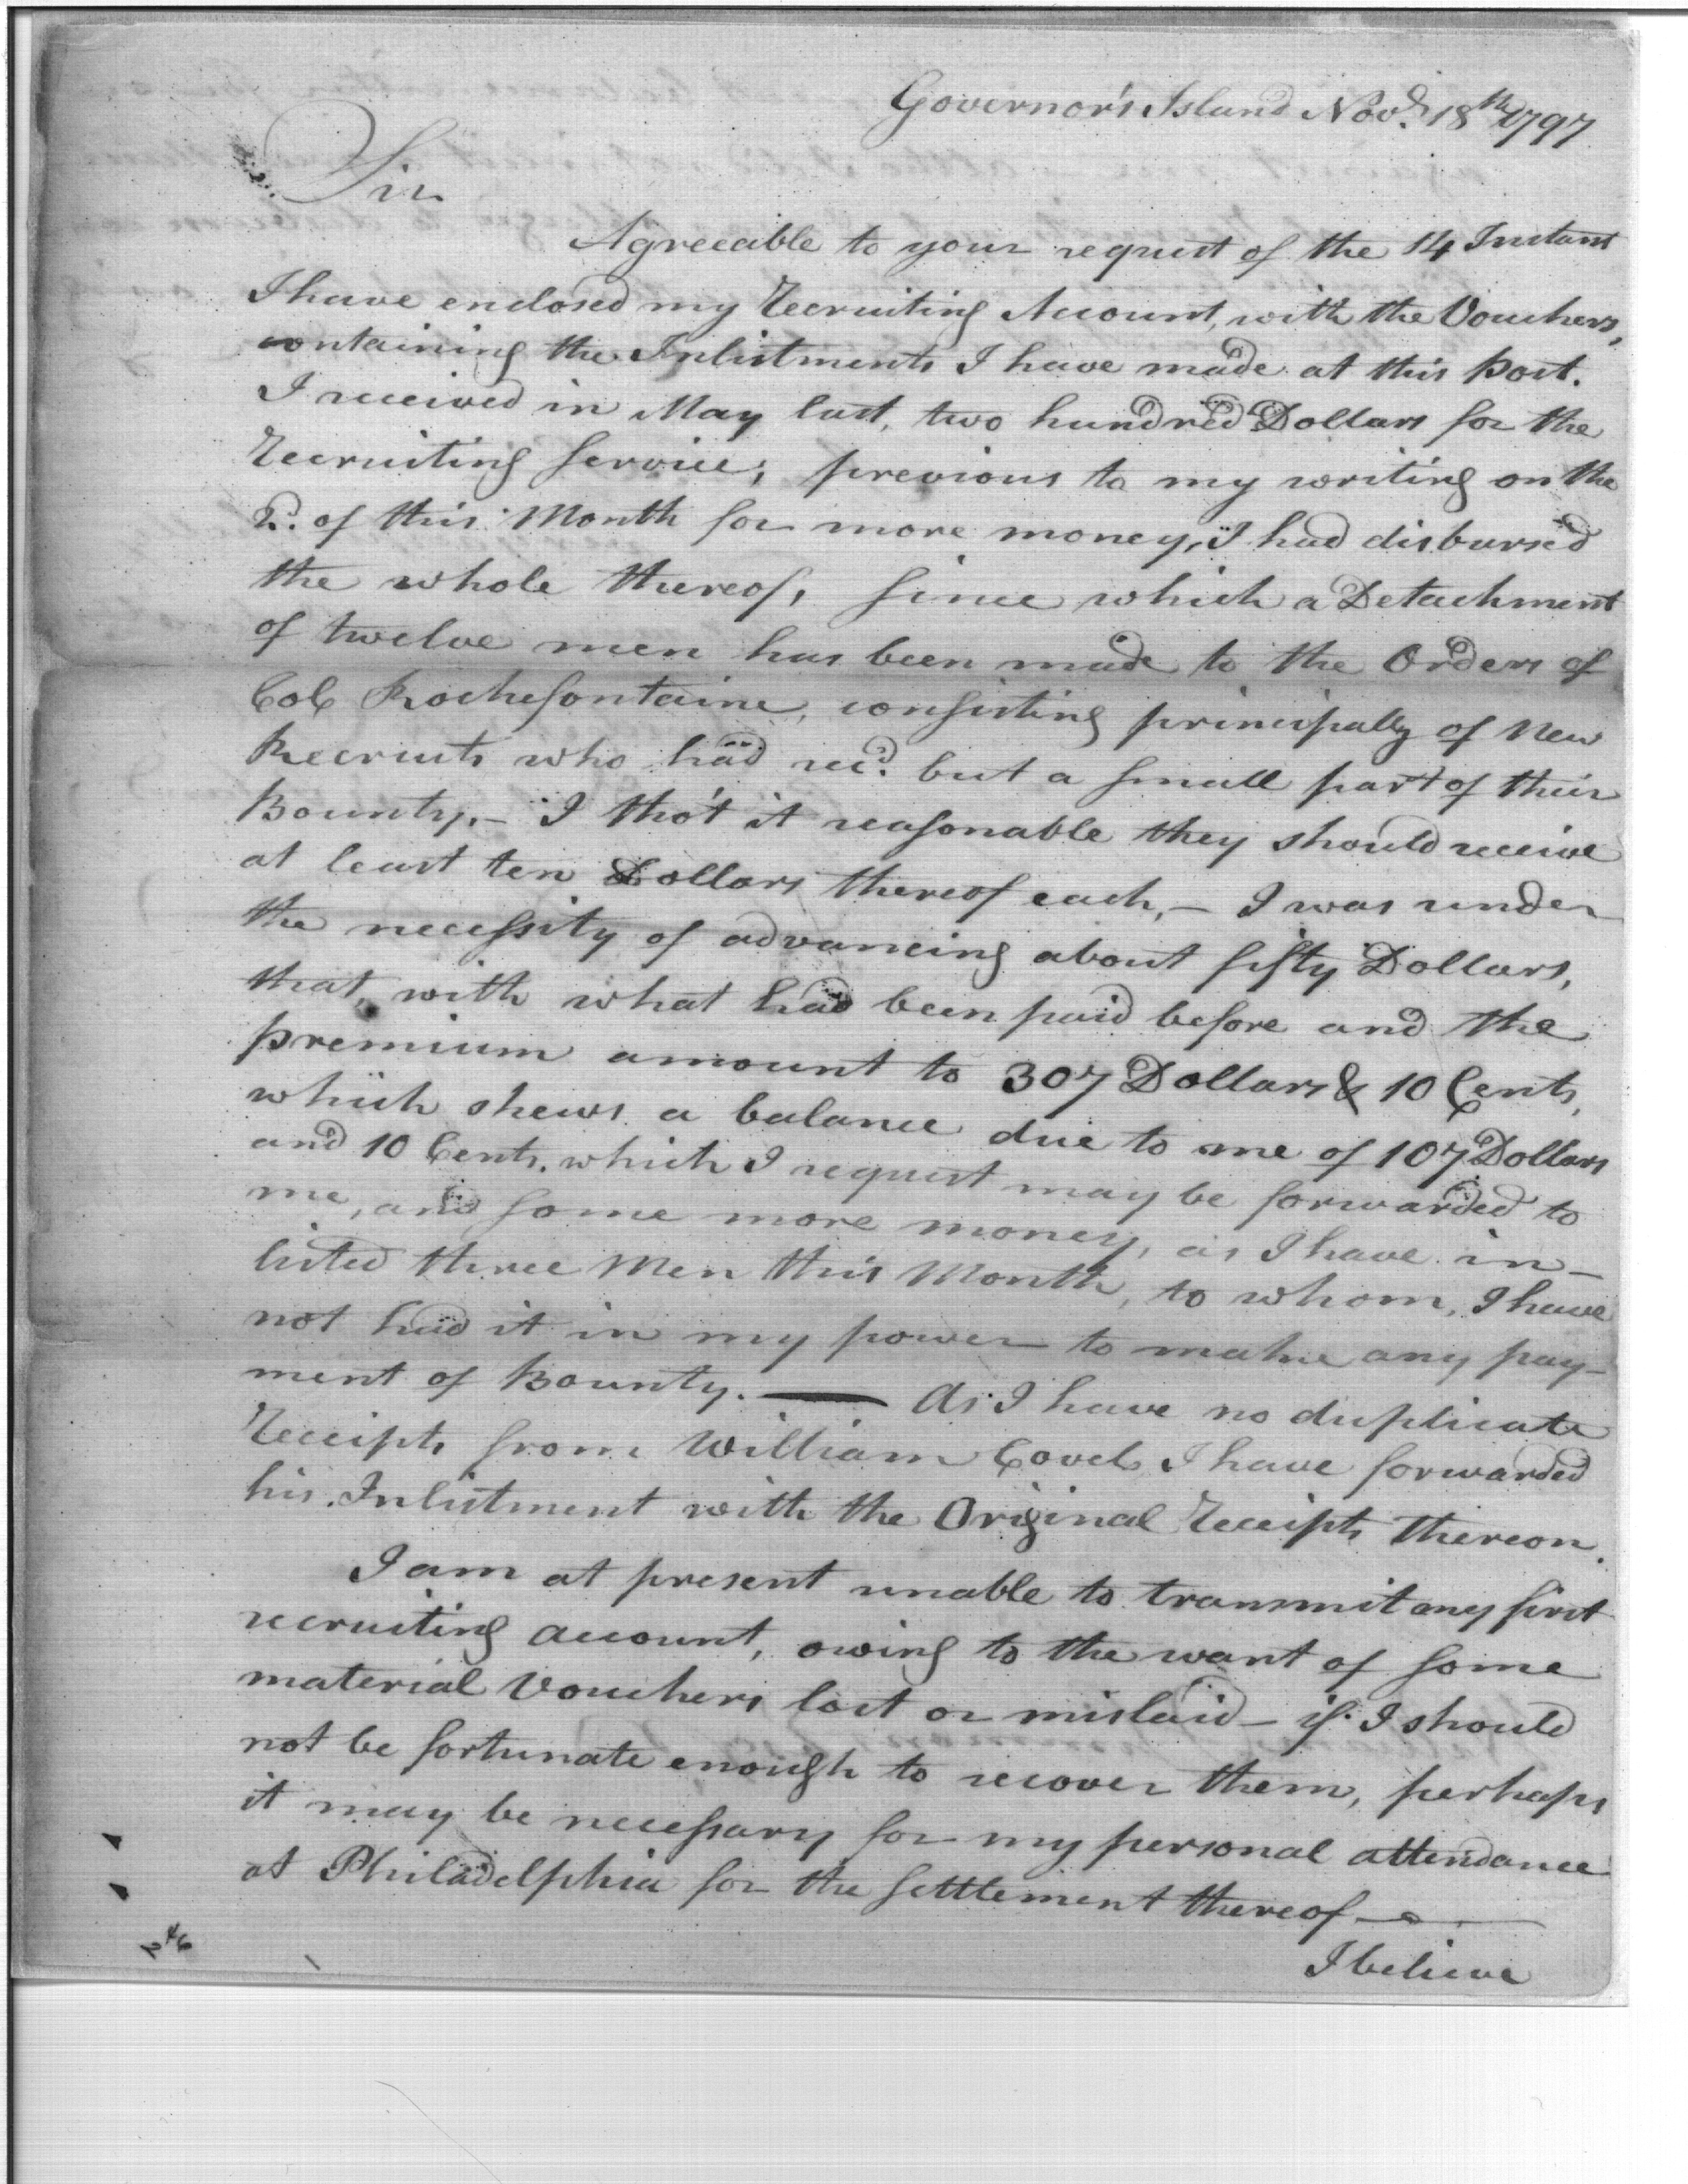 Governor's Island Nov.r 18th 1797
Sir
Agreeable to your request of the 14 Instant
I have enclosed my Recruiting Account, with the Vouchers,
containing the Inlistments I have made at this Post.
I received in May last, two hundred Dollars for the
Recruiting Service; previous to my writing on the
2d. of this Month for more money, I had disbursed
the whole thereof, since which a Detachment
of twelve men has been made to the Orders of
Col Rochefontaine, consisting principally of New
Recruits who had rec'd. but a small part of their
Bounty. — I tho't it reasonable they should receive
at least ten Dollars thereof each, — I was under
the necessity of advancing about fifty Dollars,
that, with what had been paid before and the
premium amount to 307 Dollars & 10 Cents,
which shews a balance due to me of 107 Dollars
and 10 Cents. which I request may be forwarded to
me, and some more money, as I have in-
listed three Men this Month, to whom, I have
not had it in my power to make any pay-
ment of Bounty. — As I have no duplicate
Receipts from William Covel I have forwarded
his Inlistment with the Original Receipts thereon.
I am at present unable to transmit my first
recruiting account, owing to the want of some
material Vouchers lost or mislaid — if I should
not be fortunate enough to recover them, perhaps
it may be necessary for my personal attendance
at Philadelphia for the settlement thereof —
I believe
246